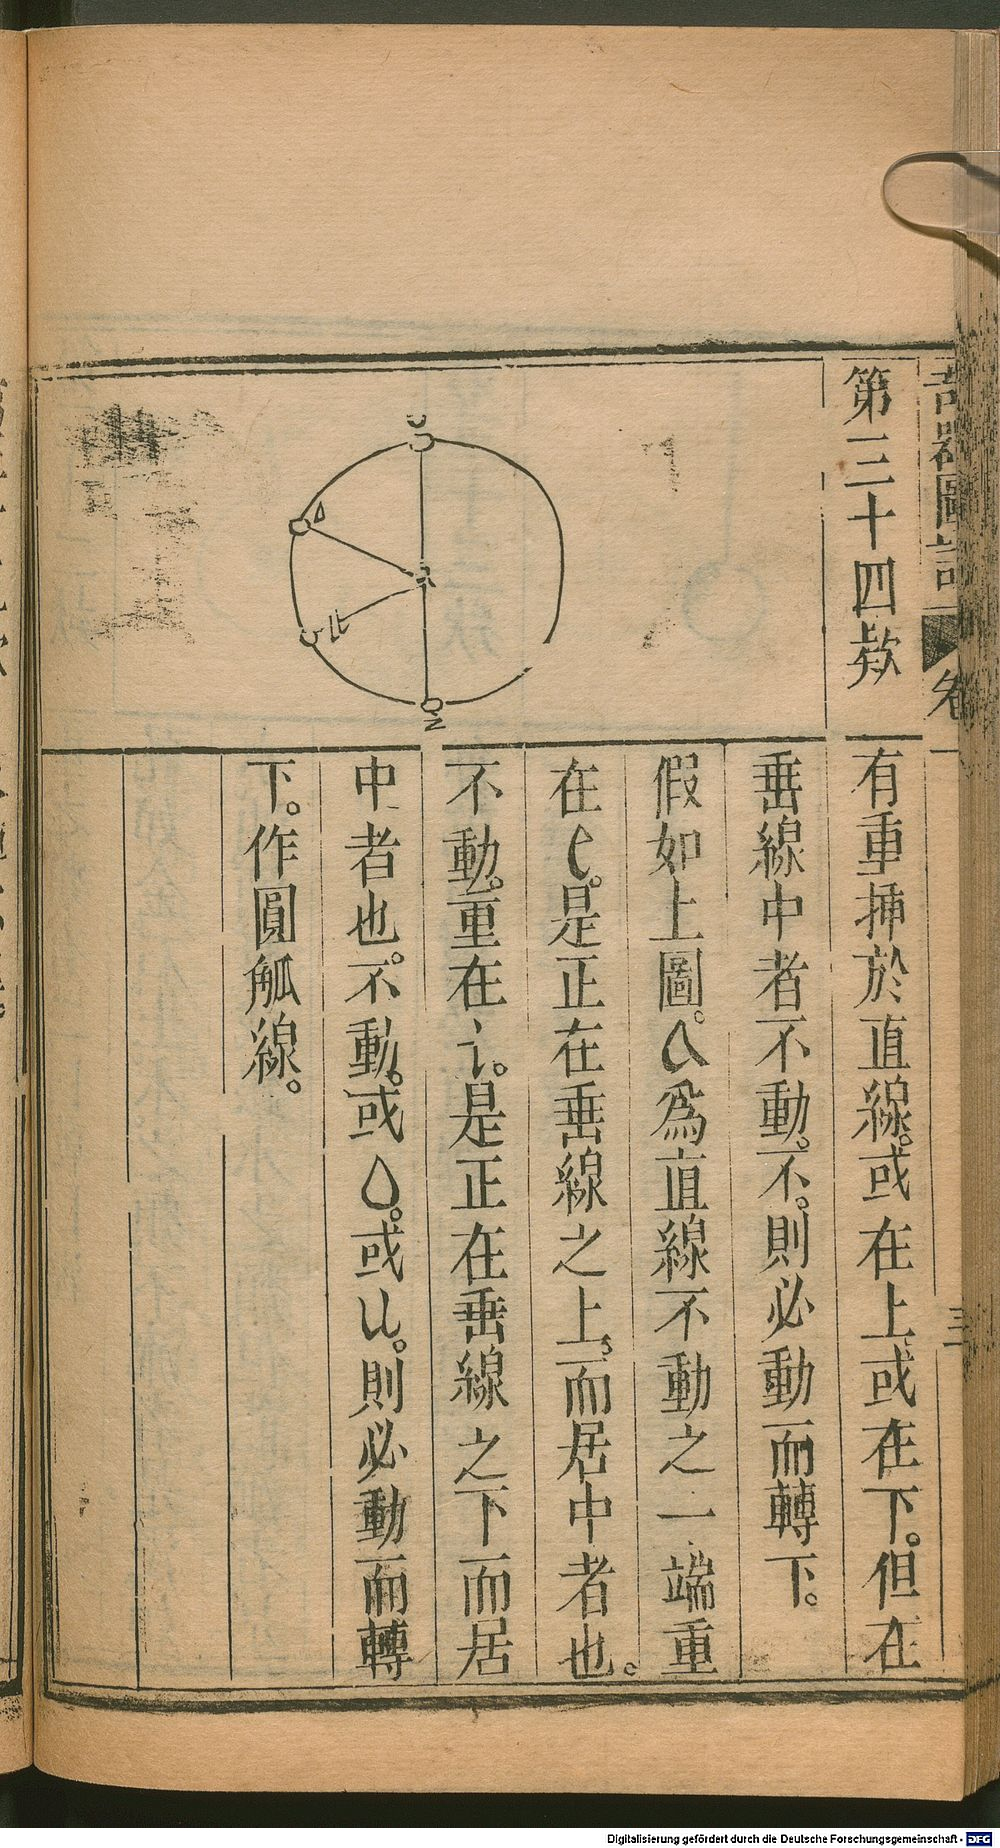 奇器圖說 卷
三
第三十四款
有重挿於直線。或在上或在下。但在
垂線中者不動。不。則必動而轉下。
假如上圖。為直線不動之一端重
在。是正在垂線之上。而居中者也。
不動。重在。是正在垂線之下而居
中者也。不動。或。或。則必動而轉
下。作圓觚線。
Digitalisierung gefördert durch die Deutsche Forschungsgemeinschaft - DFG